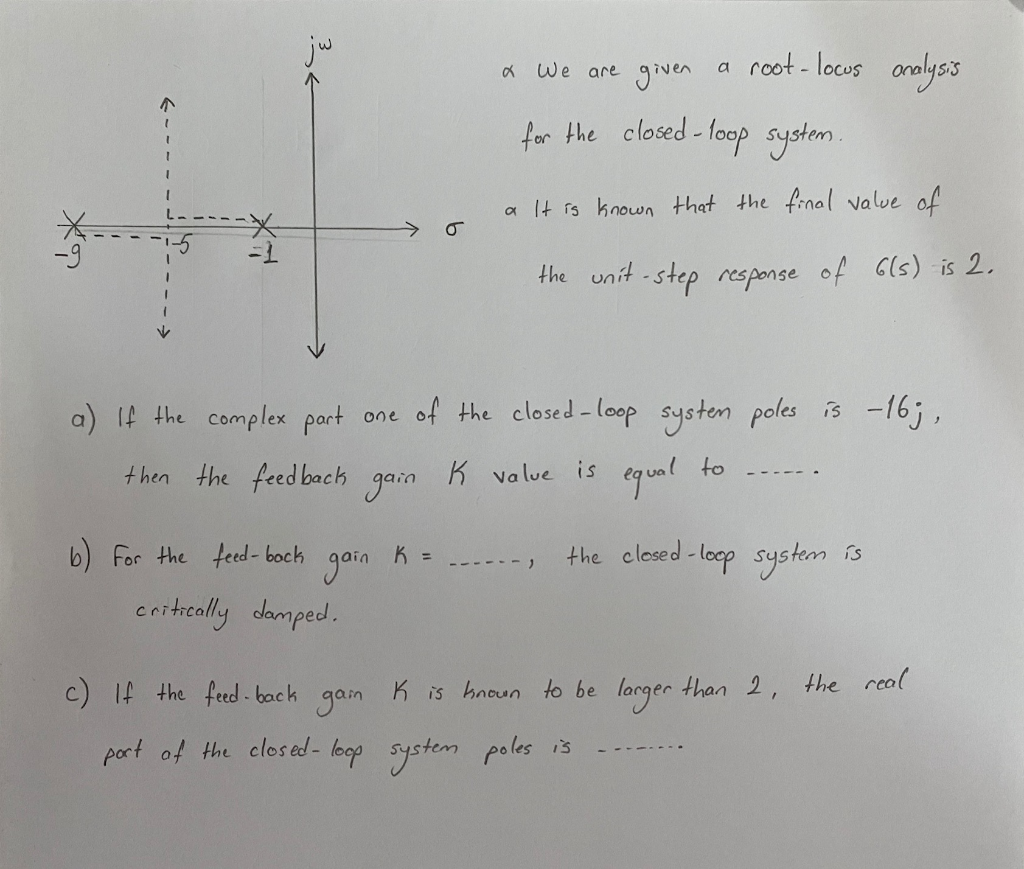 jw
α We are given a root-locus analysis
for the closed-loop system.
α It is known that the final value of
the unit-step response of G(s) is 2.
σ
-9
-5
-1
a) If the complex part one of the closed-loop system poles is -16j,
then the feedback gain K value is equal to ------.
b) For the feed-back gain K = ------, the closed-loop system is
critically damped.
c) If the feed-back gain K is known to be larger than 2, the real
part of the closed-loop system poles is --------.